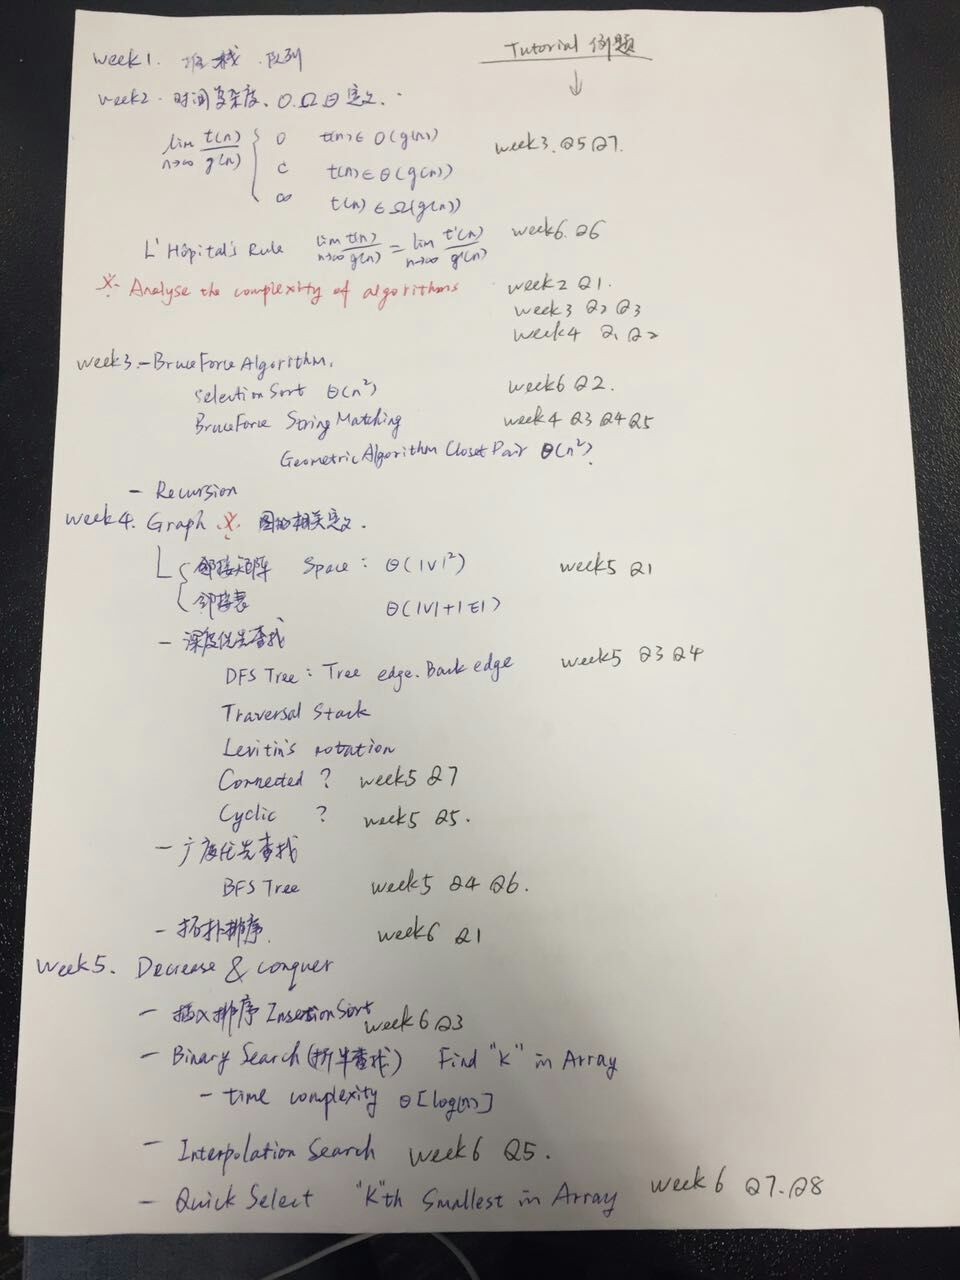 week1. 堆栈. 队列
Tutorial 例题
↓
week2. 时间复杂度、O.Ω Θ 定义.
lim n→∞ t(n)/g(n) { 0 t(n) ∈ O(g(n)) week3. Q5 Q7.
c t(n) ∈ Θ(g(n))
∞ t(n) ∈ Ω(g(n))
L'Hôpital's Rule lim n→∞ t(n)/g(n) = lim n→∞ t'(n)/g'(n) week6. Q6
※ Analyse the complexity of algorithms week2 Q1.
week3 Q2 Q3
week4 Q1 Q2
week3.-Bruce Force Algorithm.
Selection Sort Θ(n²) week6 Q2.
Bruce Force String Matching week4 Q3 Q4 Q5
Geometric Algorithm Closet Pair Θ(n²)?
- Recursion
week4. Graph ※. 图的相关定义.
{ 邻接矩阵 Space: Θ(|V|²) week5 Q1
邻接表 Θ(|V|+|E|)
- 深度优先查找
DFS Tree: Tree edge. Back edge week5 Q3 Q4
Traversal Stack
Levitin's notation
Connected ? week5 Q7
Cyclic ? week5 Q5.
- 广度优先查找
BFS Tree week5 Q4 Q6.
- 拓扑排序. week6 Q1
week5. Decrease & conquer
- 插入排序 Insertion Sort week6 Q3
- Binary Search (折半查找) Find "K" in Array
- time complexity Θ[log(n)]
- Interpolation Search week6 Q5.
- Quick Select "K"th Smallest in Array week6 Q7. Q8